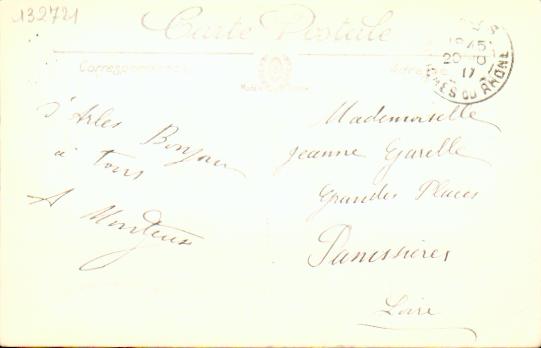 132721
Carte Postale
Correspondance
Adresse
18 45
20 10
17
CHES DU RHÔNE
d'Arles Bonjour
à tous
A Monteux
Mademoiselle
Jeanne Garelle
Grandes Places
Panissières
Loire